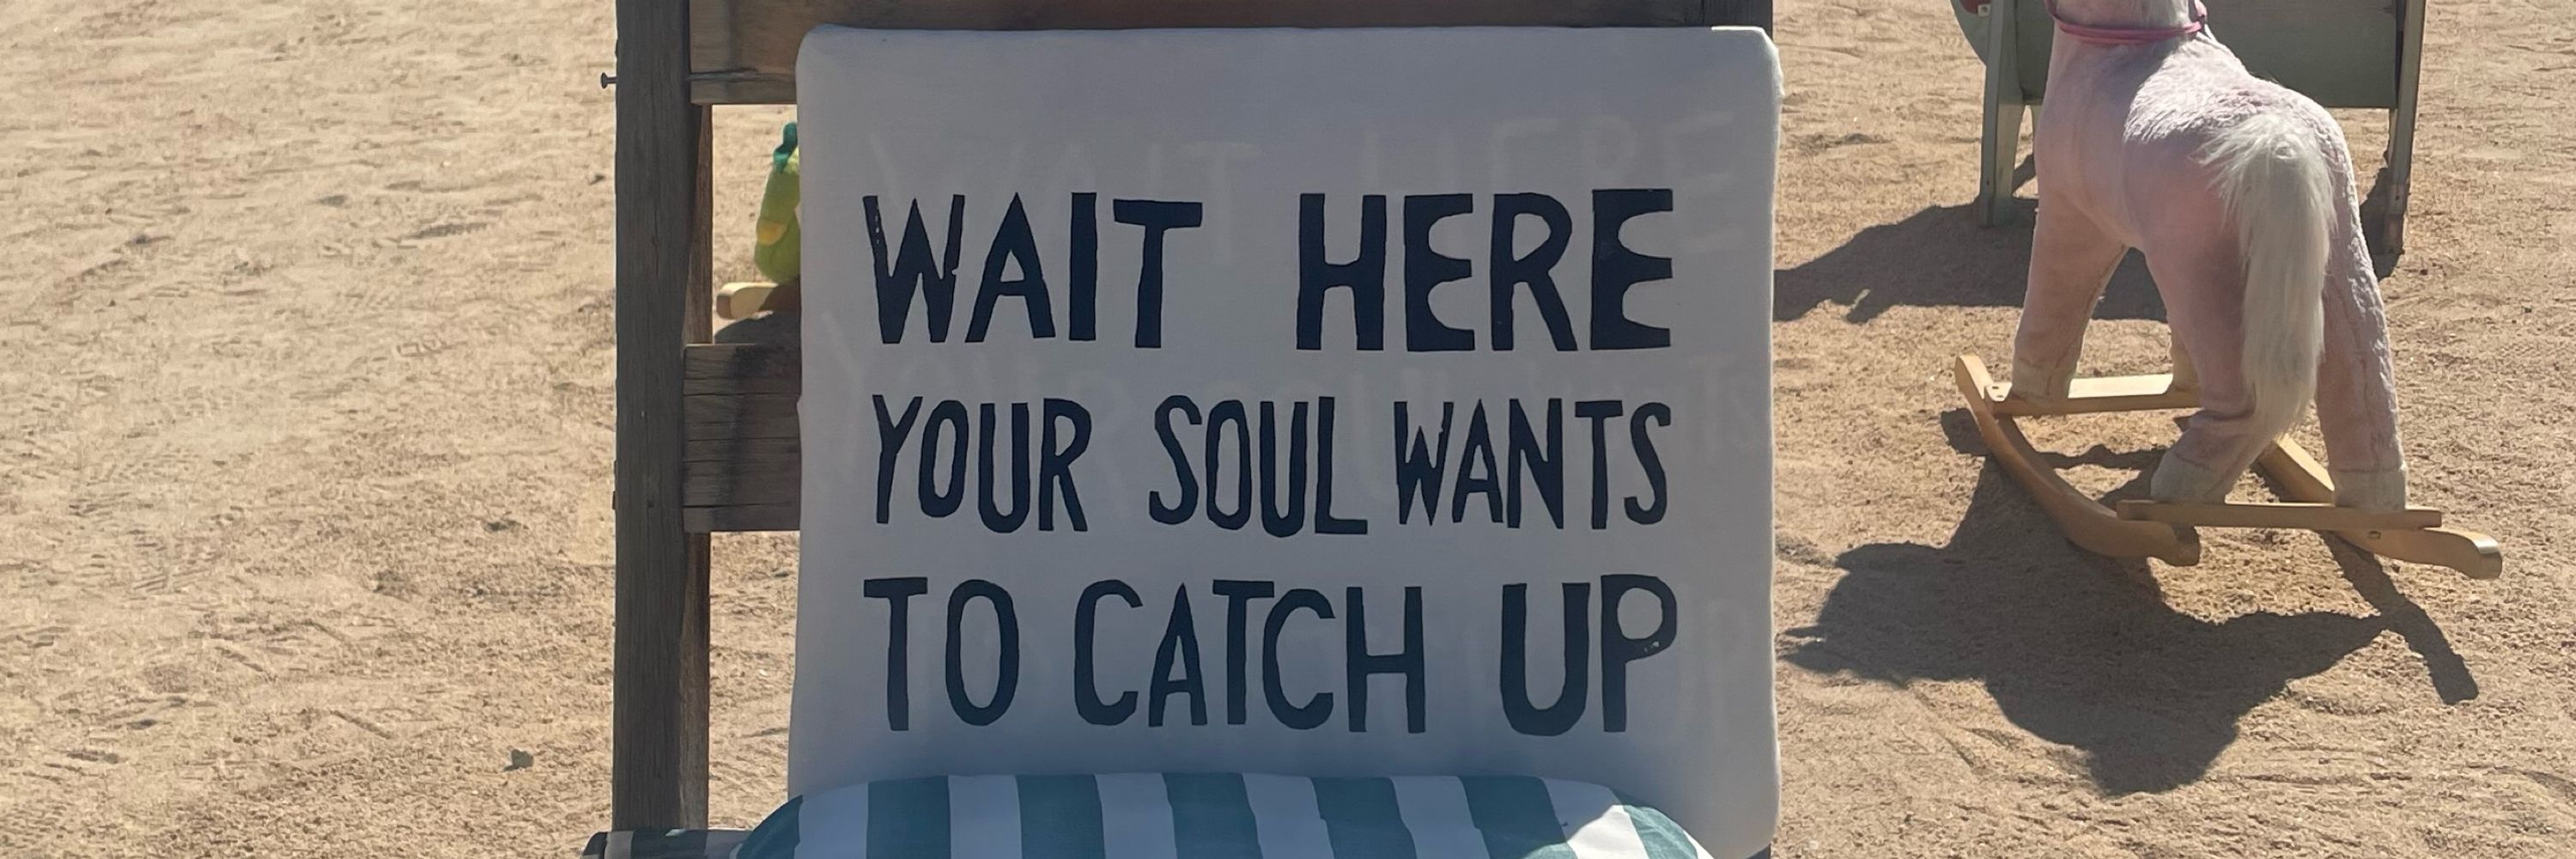 WAIT HERE
YOUR SOUL WANTS
TO CATCH UP